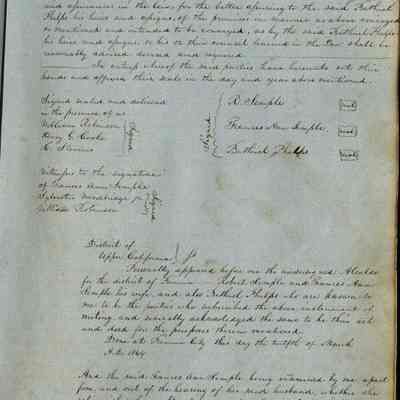 and assurances in the law, for the better assuring to the said Bethuel
Phelps his heirs and assigns, of the premises in manner as above conveyed
or mentioned and intended to be conveyed, as by the said Bethuel Phelps
his heirs and assigns or his or their counsel learned in the Law shall be
reasonably advised devised and required
In witness whereof the said parties have hereunto set their
hands and affixed their seals in the day and year above mentioned
Signed sealed and delivered
in the presence of us
William Robinson
Henry
H.
Signed
Signed
R. Semple
Seal
Frances Ann Semple
Seal
Bethuel Phelps
Seal
Witness to the signature
of Frances Ann Semple
William Robinson
Signed
District of
Upper California
Personally appeared before me the undersigned Alcalde
for the district of Robert Semple and Frances Ann
Semple his wife, and also Bethuel Phelps who are known to
me to be the parties who subscribed the above instrument of
writing, and severally acknowledged the same to be their act
and deed for the purposes therein mentioned.
Done at City this day the twelfth of March
A.D.
And the said Frances Ann Semple being examined by me apart
from, and out of the hearing of her said husband, whether she